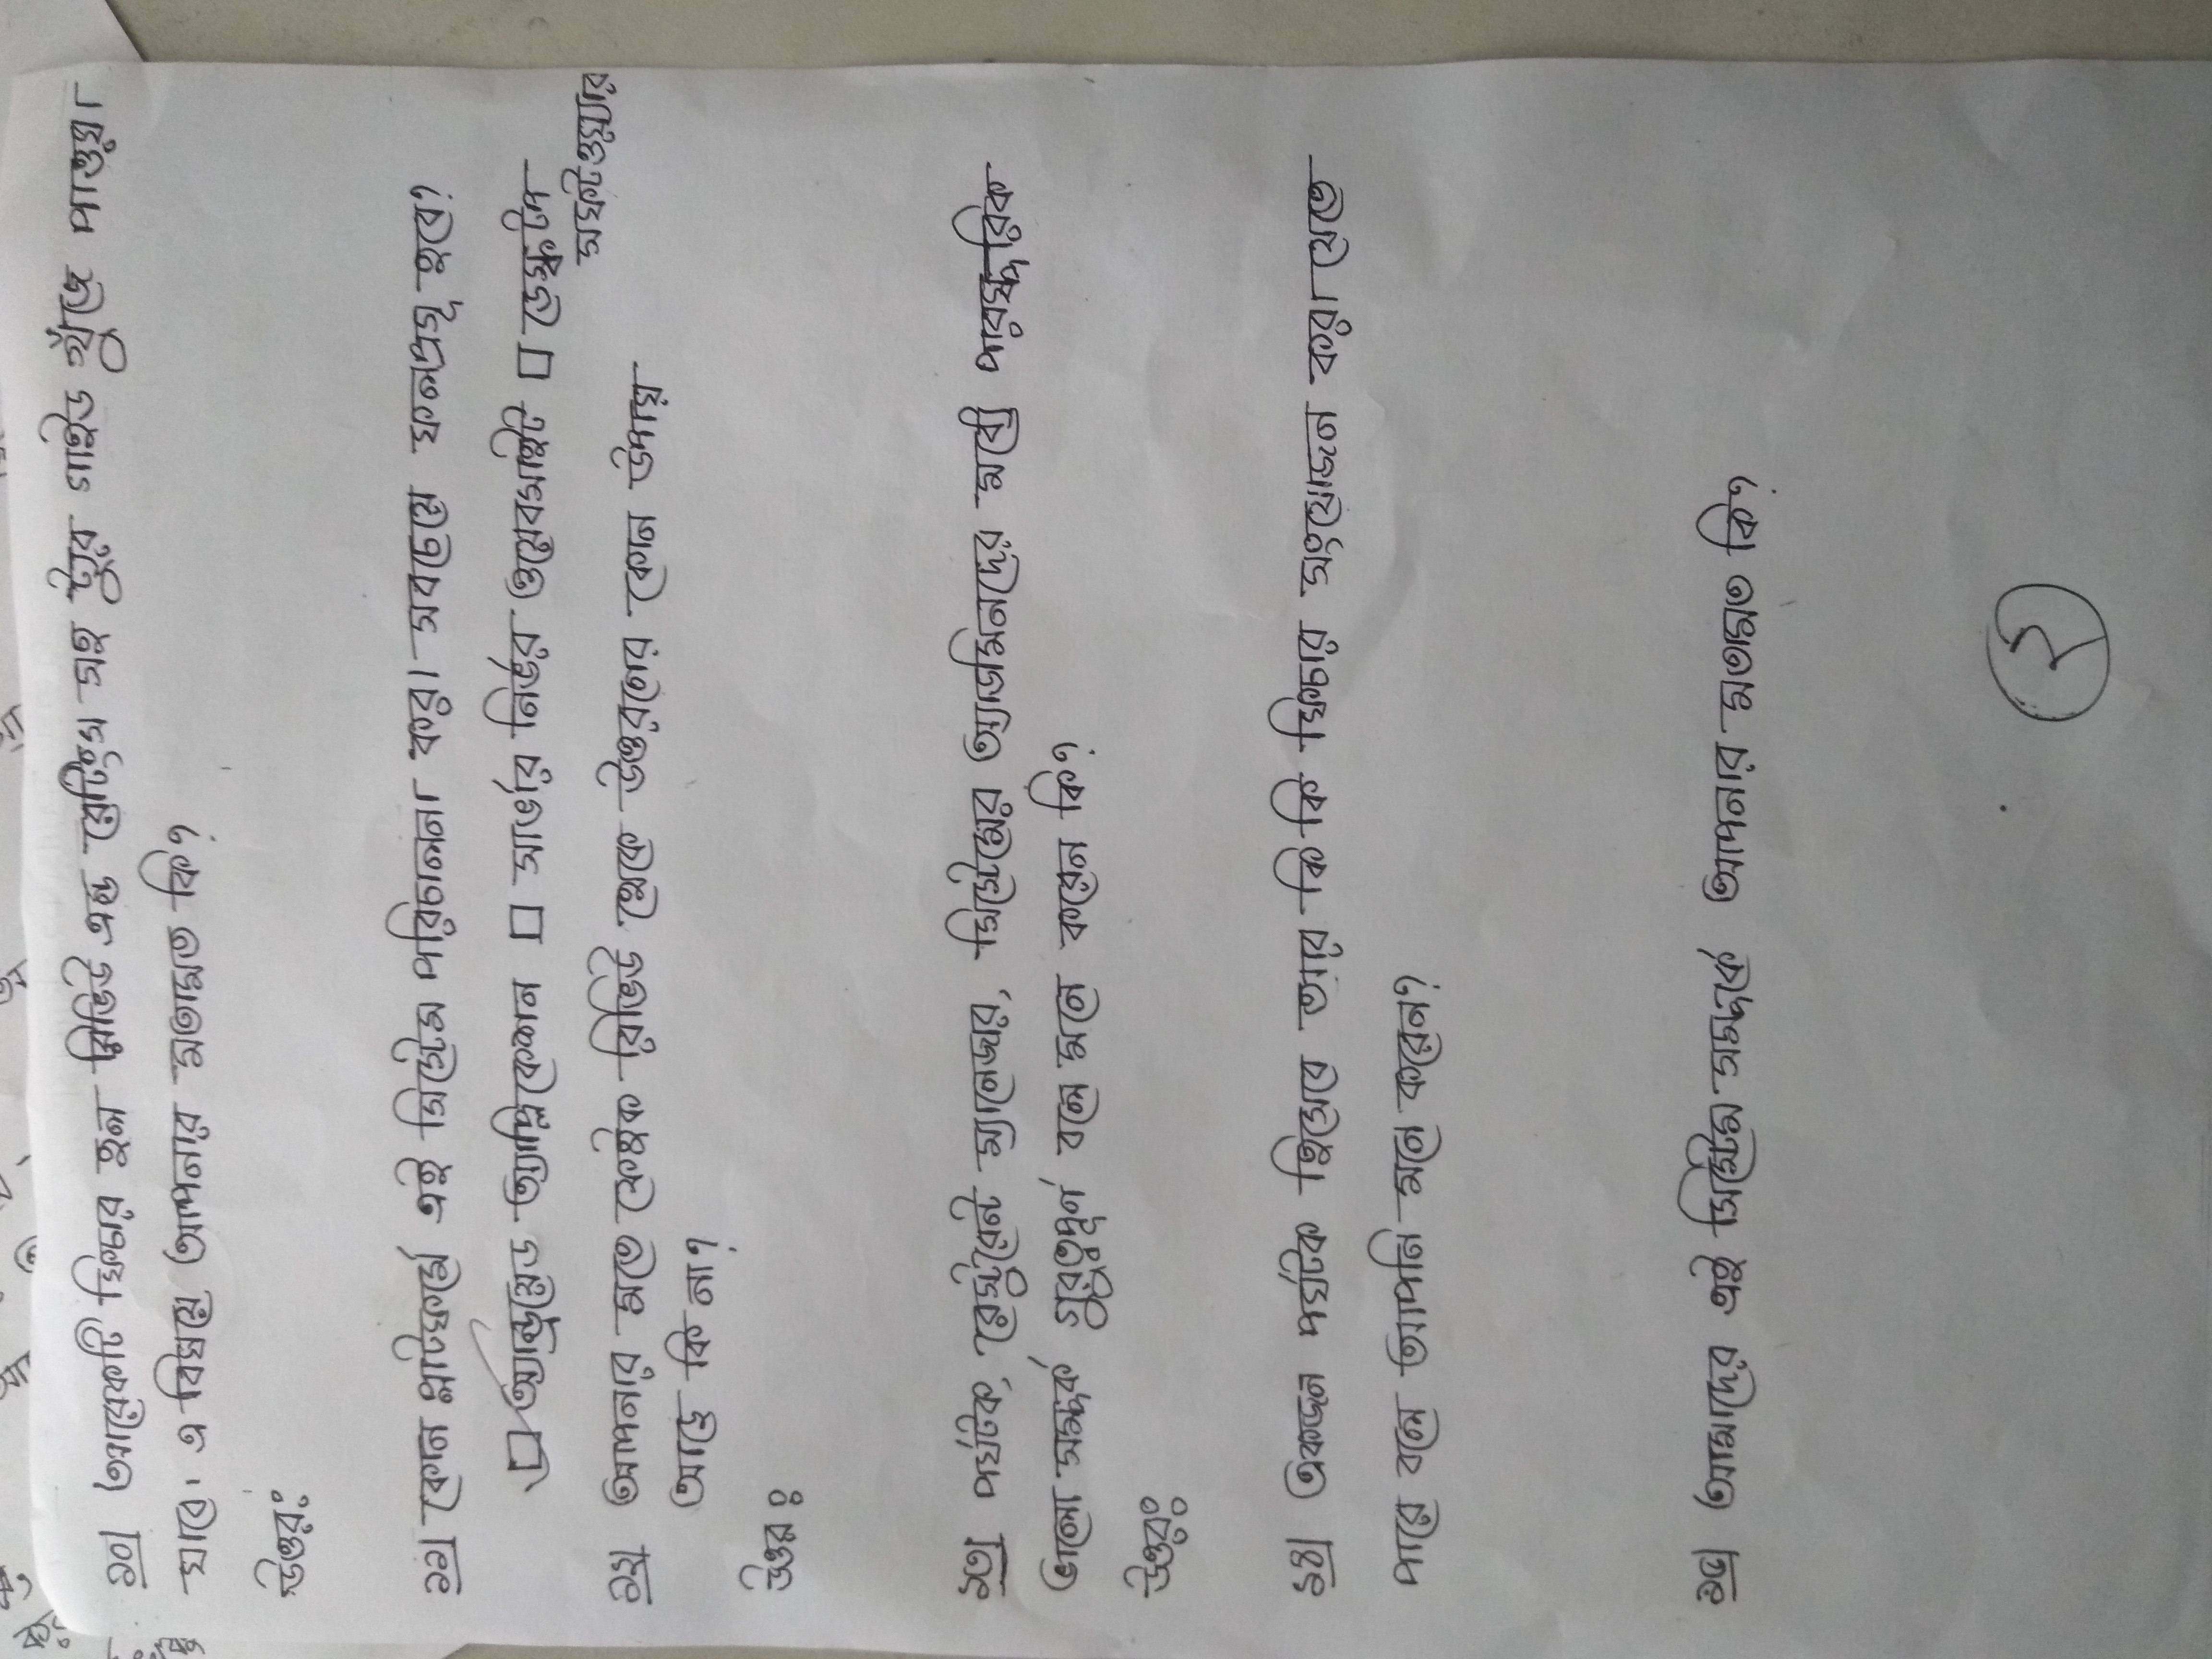 ১০| আরেকটি ফিচার হল রিভিউ এন্ড রেটিংস সহ ট্যুর গাইড খুঁজে পাওয়া
যাবে। এ বিষয়ে আপনার মতামত কি?
উত্তরঃ
১১| কোন প্লাটফর্মে এই সিস্টেম পরিচালনা করা সবচেয়ে ফলপ্রসূ হবে?
□ অ্যান্ড্রয়েড অ্যাপ্লিকেশন □ সার্ভার নির্ভর ওয়েবসাইট □ ডেস্কটপ
সফটওয়্যার
১২| আপনার মতে ফেইক রিভিউ থেকে উত্তরণের কোন উপায়
আছে কি না?
উত্তরঃ
১৩| পর্যটক, রেস্টুরেন্ট ম্যানেজার, সিস্টেমের অ্যাডমিনদের মধ্যে পারস্পরিক
ভালো সম্পর্ক গুরুত্বপূর্ণ বলে মনে করেন কি?
উত্তরঃ
১৪| একজন পর্যটক হিসেবে আর কি কি ফিচার সংযোজন করা যেতে
পারে বলে আপনি মনে করেন?
১৫| আমাদের এই সিস্টেম সম্পর্কে আপনার মতামত কি?
২